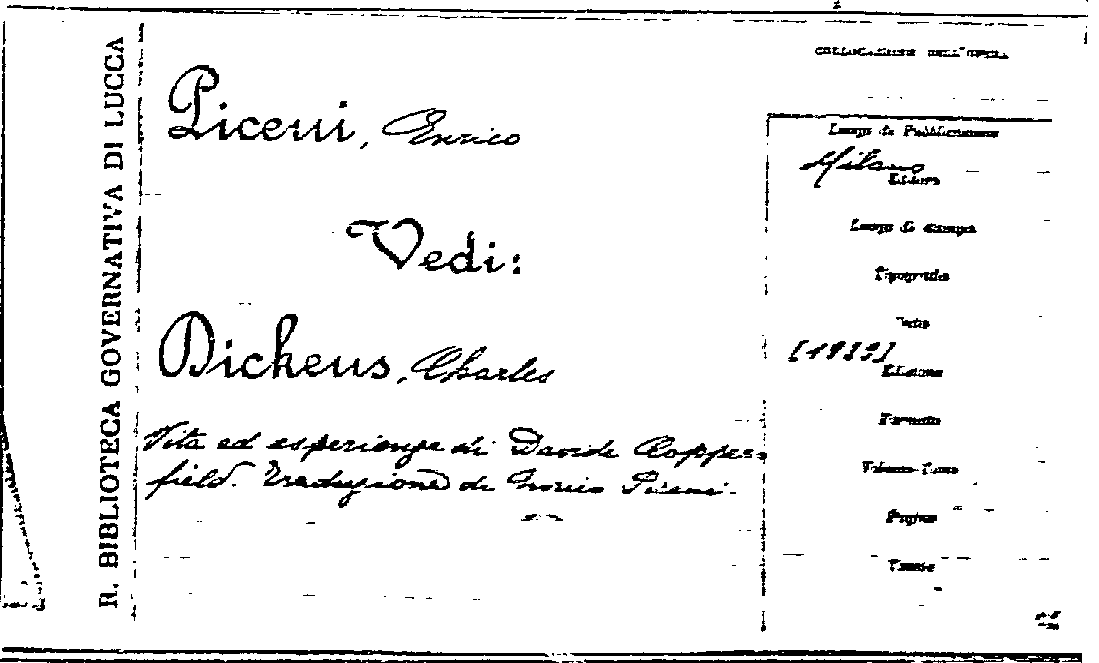 R. BIBLIOTECA GOVERNATIVA DI LUCCA
Piceni, Enrico
Vedi:
Dickens, Charles
Vita ed esperienze di Davide Copper=
field. Traduzione di Enrico Piceni.
COLLOCAZIONE DELL'OPERA
Luogo di Pubblicazione
Milano
Editore
Luogo di stampa
Tipografia
Data
[1933]
Edizione
Formato
Pagine
Tavole